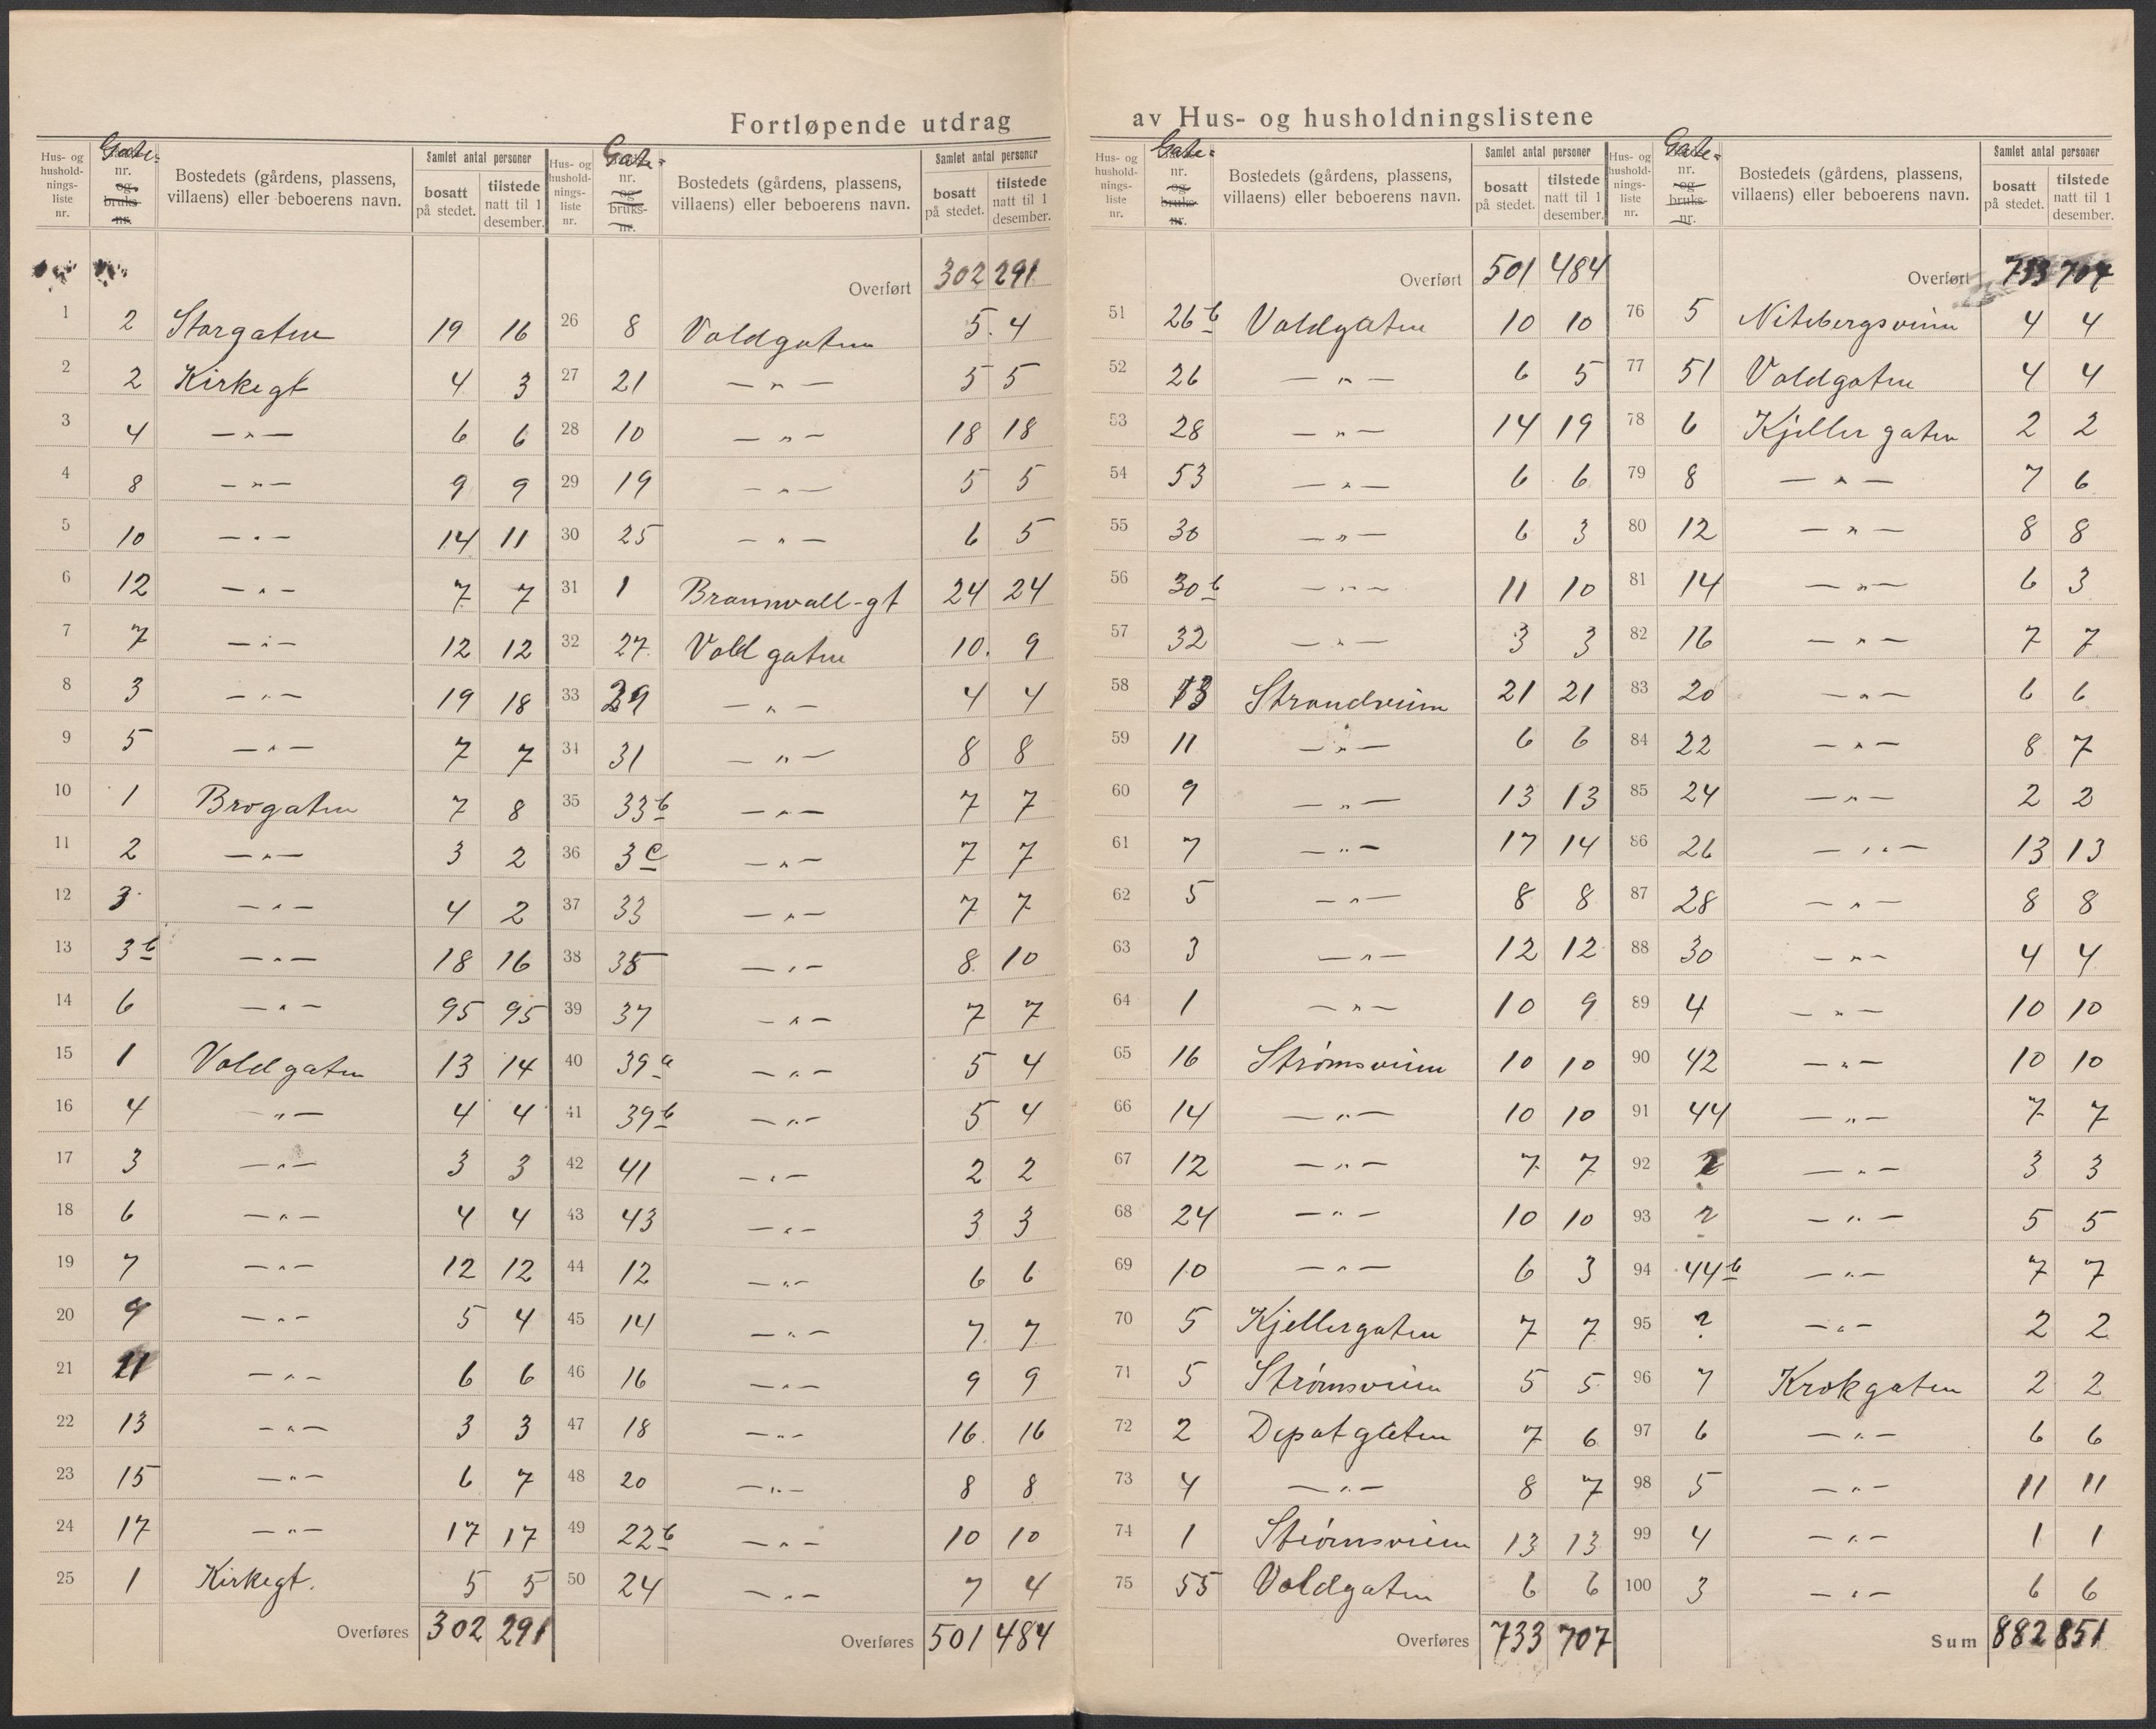 Fortløpende utdrag av Hus- og husholdningslistene
Hus- og hushold-nings-liste nr. | Gate- nr. og bruks-nr. | Bostedets (gårdens, plassens, villaens) eller beboerens navn. | Samlet antal personer | bosatt på stedet. | tilstede natt til 1 desember.
1 2 Storgaten 19 16
2 2 Kirkegt 4 3
3 4 —„— 6 6
4 8 —„— 9 9
5 10 —„— 14 11
6 12 —„— 7 7
7 7 —„— 12 12
8 3 —„— 19 18
9 5 —„— 7 7
10 1 Brogaten 7 8
11 2 —„— 3 2
12 3 —„— 4 2
13 3b —„— 18 16
14 6 —„— 95 95
15 1 Voldgaten 13 14
16 4 —„— 4 4
17 3 —„— 3 3
18 6 —„— 4 4
19 7 —„— 12 12
20 9 —„— 5 4
21 11 —„— 6 6
22 13 —„— 3 3
23 15 —„— 6 7
24 17 —„— 17 17
25 1 Kirkegt. 5 5
Overføres 302 291
Hus- og hushold-nings-liste nr. | Gate- nr. og bruks-nr. | Bostedets (gårdens, plassens, villaens) eller beboerens navn. | Samlet antal personer | bosatt på stedet. | tilstede natt til 1 desember.
Overført 302 291
26 8 Voldgaten 5 4
27 21 —„— 5 5
28 10 —„— 18 18
29 19 —„— 5 5
30 25 —„— 6 5
31 1 Braunwall-gt 24 24
32 27 Voldgaten 10 9
33 29 —„— 4 4
34 31 —„— 8 8
35 33b —„— 7 7
36 3c —„— 7 7
37 33 —„— 7 7
38 35 —„— 8 10
39 37 —„— 7 7
40 39a —„— 5 4
41 39b —„— 5 4
42 41 —„— 2 2
43 43 —„— 3 3
44 12 —„— 6 6
45 14 —„— 7 7
46 16 —„— 9 9
47 18 —„— 16 16
48 20 —„— 8 8
49 22b —„— 10 10
50 24 —„— 7 4
Overføres 501 484
Hus- og hushold-nings-liste nr. | Gate- nr. og bruks-nr. | Bostedets (gårdens, plassens, villaens) eller beboerens navn. | Samlet antal personer | bosatt på stedet. | tilstede natt til 1 desember.
Overført 501 484
51 26b Voldgaten 10 10
52 26 —„— 6 5
53 28 —„— 14 19
54 53 —„— 6 6
55 30 —„— 6 3
56 30b —„— 11 10
57 32 —„— 3 3
58 13 Strandveien 21 21
59 11 —„— 6 6
60 9 —„— 13 13
61 7 —„— 17 14
62 5 —„— 8 8
63 3 —„— 12 12
64 1 —„— 10 9
65 16 Strømsveien 10 10
66 14 —„— 10 10
67 12 —„— 7 7
68 24 —„— 10 10
69 10 —„— 6 3
70 5 Kjellergaten 7 7
71 5 Strømsveien 5 5
72 2 Depotgaten 7 6
73 4 —„— 8 7
74 1 Strømsveien 13 13
75 55 Voldgaten 6 6
Overføres 733 707
Hus- og hushold-nings-liste nr. | Gate- nr. og bruks-nr. | Bostedets (gårdens, plassens, villaens) eller beboerens navn. | Samlet antal personer | bosatt på stedet. | tilstede natt til 1 desember.
Overført 733 707
76 5 Nitebergsveien 4 4
77 51 Voldgaten 4 4
78 6 Kjellergaten 2 2
79 8 —„— 7 6
80 12 —„— 8 8
81 14 —„— 6 3
82 16 —„— 7 7
83 20 —„— 6 6
84 22 —„— 8 7
85 24 —„— 2 2
86 26 —„— 13 13
87 28 —„— 8 8
88 30 —„— 4 4
89 4 —„— 10 10
90 42 —„— 10 10
91 44 —„— 7 7
92 ? —„— 3 3
93 ? —„— 5 5
94 44b —„— 7 7
95 ? —„— 2 2
96 7 Krokgaten 2 2
97 6 —„— 6 6
98 5 —„— 11 11
99 4 —„— 1 1
100 3 —„— 6 6
Sum 882 851